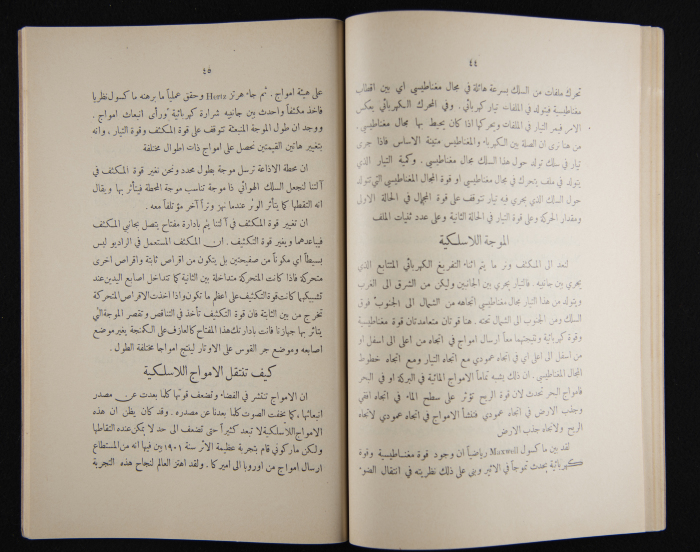 ٤٤
تحرك ملفات من السلك بسرعة هائلة في مجال مغناطيسي اي بين اقطاب
مغناطيسية فيتولد في الملفات تيار كهربائي . وفي المحرك الكهربائي يعكس
الامر فيمر التيار في الملفات ويحركها اذا كان يحيط بها مجال مغناطيسي .
من هنا نرى ان الصلة بين الكهرباء والمغناطيس متينة الاساس فاذا جرى
تيار في سلك تولد حول هذا السلك مجال مغناطيسي . وكمية التيار الذي
يتولد في ملف يتحرك في مجال مغناطيسي او قوة المجال المغناطيسي التي تتولد
حول السلك الذي يجري فيه تيار تتوقف على قوة المجال في الحالة الاولى
ومقدار الحركة وعلى قوة التيار في الحالة الثانية وعلى عدد ثنيات الملف
الموجة اللاسلكية
لنعد الى المكثف ونر ما يتم اثناء التفريغ الكهربائي المتتابع الذي
يجري بين جانبيه . فالتيار يجري بين الجانبين وليكن من الشرق الى الغرب
ويتولد من هذا التيار مجال مغناطيسي اتجاهه من الشمال الى الجنوب فوق
السلك ومن الجنوب الى الشمال تحته . هنا قوتان متعامدتان قوة مغناطيسية
وقوة كهربائية ونتيجتهما معاً ارسال امواج في اتجاه من اعلى الى اسفل او
من اسفل الى اعلى اي في اتجاه عمودي مع اتجاه التيار ومع اتجاه خطوط
المجال المغناطيسي . ان ذلك يشبه تماماً الامواج المائية في البركة او في البحر
فامواج البحر تحدث لان قوة الريح تؤثر على سطح الماء في اتجاه افقي
وجذب الارض في اتجاه عمودي فتنشأ الامواج في اتجاه عمودي لاتجاه
الريح ولاتجاه جذب الارض
لقد بين ماكسول Maxwell رياضياً ان وجود قوة مغناطيسية وقوة
كهربائية يحدث تموجاً في الاثير وبنى على ذلك نظريته في انتقال الضوء
٤٥
على هيئة امواج . ثم جاء هرتز Hertz وحقق عملياً ما برهنه ماكسول نظريا
فاخذ مكثفاً واحدث بين جانبيه شرارة كهربائية ورأى انبعاث امواج .
ووجد ان طول الموجة المنبعثة تتوقف على قوة المكثف وقوة التيار ، وانه
بتغيير هاتين القيمتين نحصل على امواج ذات اطوال مختلفة
ان محطة الاذاعة ترسل موجة بطول محدد ونحن نغير قوة المكثف في
آلتنا لنجعل السلك الهوائي ذا موجة تناسب موجة المحطة فيتأثر بها ويقال
انه التقطها كما يتأثر الوتر عندما نهز وتراً آخر مؤتلفاً معه .
ان تغيير قوة المكثف في آلتنا يتم بادارة مفتاح يتصل بجانبي المكثف
فيباعدهما ويغير قوة التكثيف . ان المكثف المستعمل في الراديو ليس
بسيطاً اي مكوناً من صفيحتين بل يتكون من اقراص ثابتة واقراص اخرى
متحركة فاذا كانت المتحركة متداخلة بين الثانية كما تتداخل اصابع اليدين عند
تشبيكها كانت قوة التكثيف على اعظم ما تكون واذا اخذت الاقراص المتحركة
تخرج من بين الثابتة فان قوة التكثيف تأخذ في التناقص وتقصر الموجة التي
يتأثر بها جهازنا فانت بادارتك هذا المفتاح كالعازف على الكمنجة يغير موضع
اصابعه وموضع جر القوس على الاوتار لينتج امواجا مختلفة الطول .
كيف تنتقل الامواج اللاسلكية
ان الامواج تنتشر في الفضاء وتضعف قوتها كلما بعدت عن مصدر
انبعاثها ، كما يخفت الصوت كلما بعدنا عن مصدره . وقد كان يظن ان هذه
الامواج اللاسلكية لا تبعد كثيراً حتى تضعف الى حد لا يمكن عنده التقاطها
ولكن ماركوني قام بتجربة عظيمة الاثر سنة ١٩٠١ بين فيها انه من المستطاع
ارسال امواج من اوروبا الى اميركا . ولقد اهتز العالم لنجاح هذه التجربة